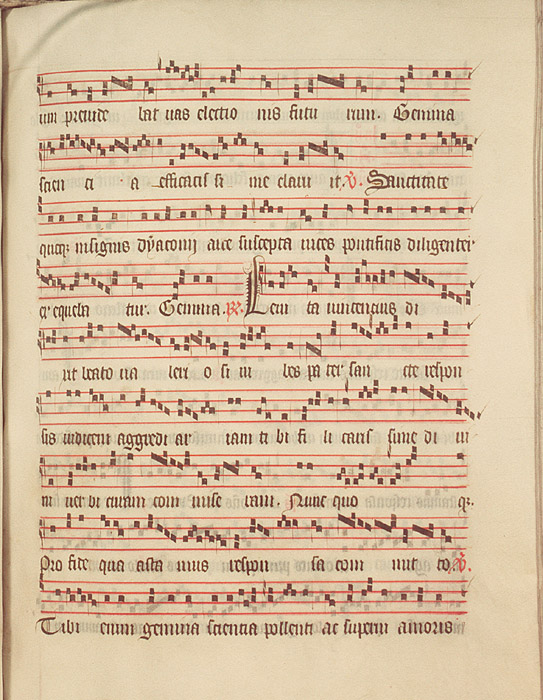 um prelude bat uas electio nis futu rum. Gemina
scien ci a efficacis si me claru it. V. Sanctitate
quoq; insignis dyaconij arce suscepta uices pontificis diligenter
exequeba tur. Gemina. R. Leui ta uincencius di
xit beato ua leri o si iu bes pa ter san cte respon
sis iudicem aggredi ar iam ti bi fi li caris sime di ui
ni uer bi curam com mise ram. Nunc quo q;
Pro fide qua asta mus respon sa com mit to. V.
Tibi enim gemina scientia pollenti ac superni amoris